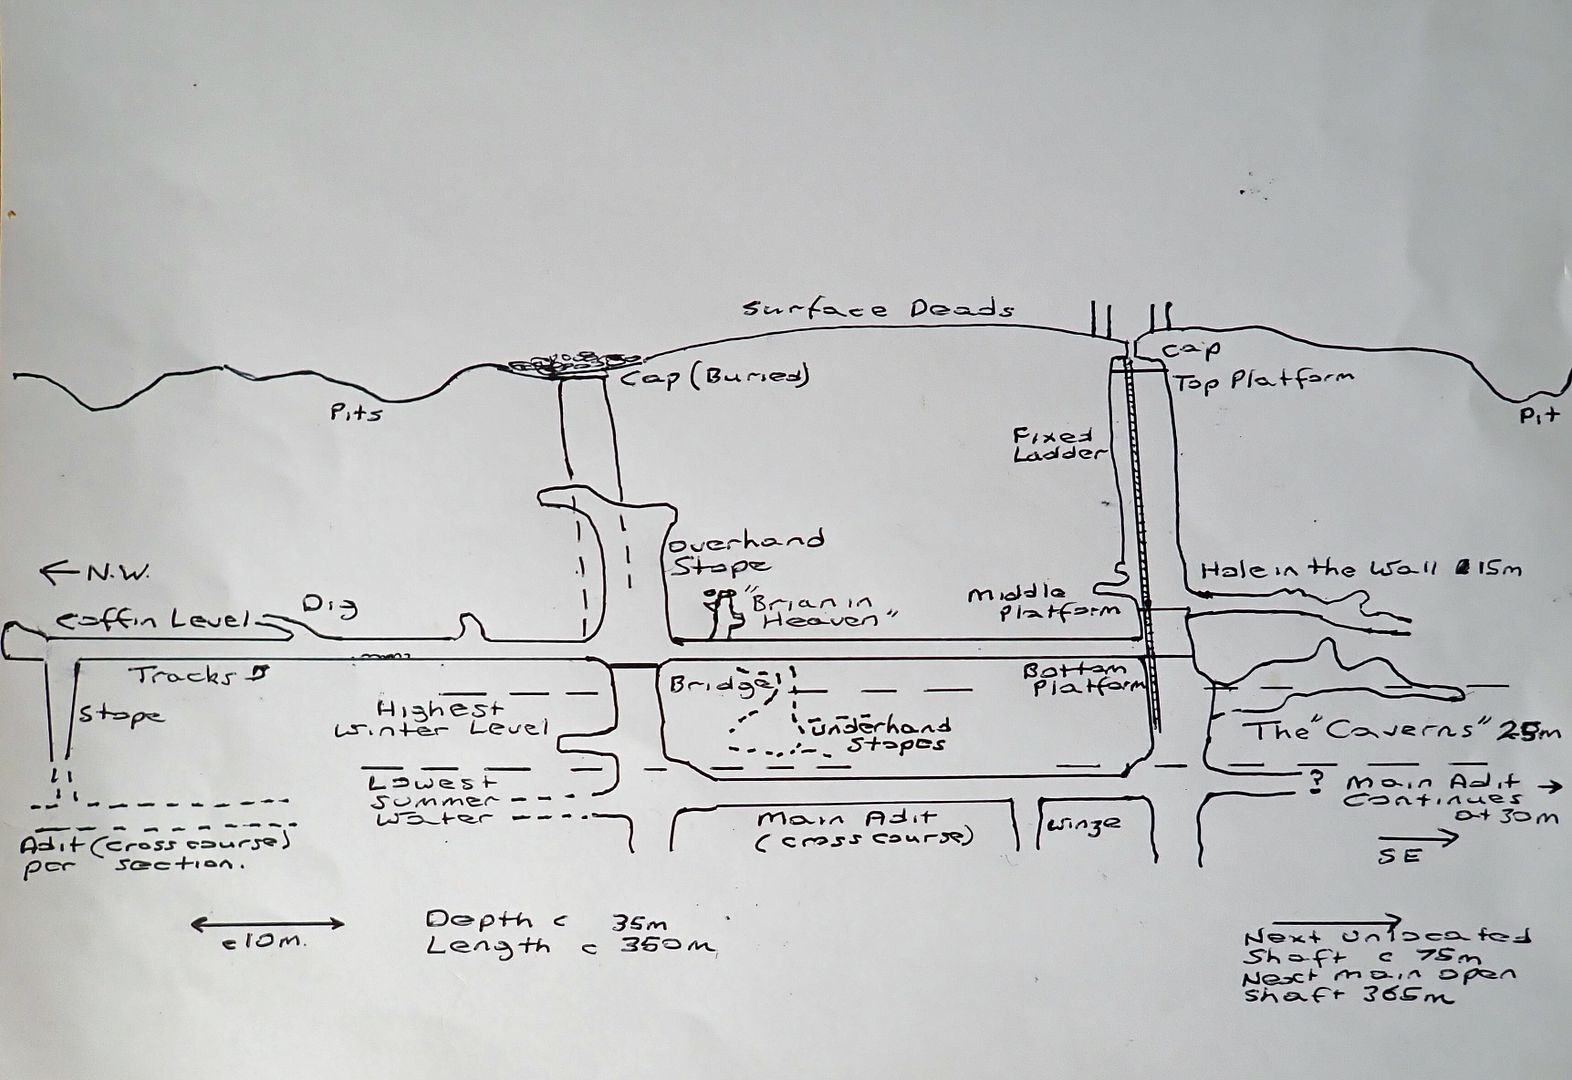 Surface Deads
Cap
Cap (Buried)
Top Platform
Pits
Pit
Fixed
Ladder
Overhand
Stope
Hole in the Wall 15m
← N.W.
Middle
Platform
"Brian in
Heaven"
Dig
Coffin Level
Tracks
Bridge
Bottom
Platform
Stope
Highest
Winter Level
Underhand
Stopes
The "Caverns" 25m
Lowest
Summer
Water
? Main Adit →
Continues
at 30m
Main Adit
(cross course)
Winze
Adit (cross course)
per section.
SE
c10m.
Depth c 35m
Length c 350m
Next unlocated
Shaft c 75m
Next main open
shaft 365m